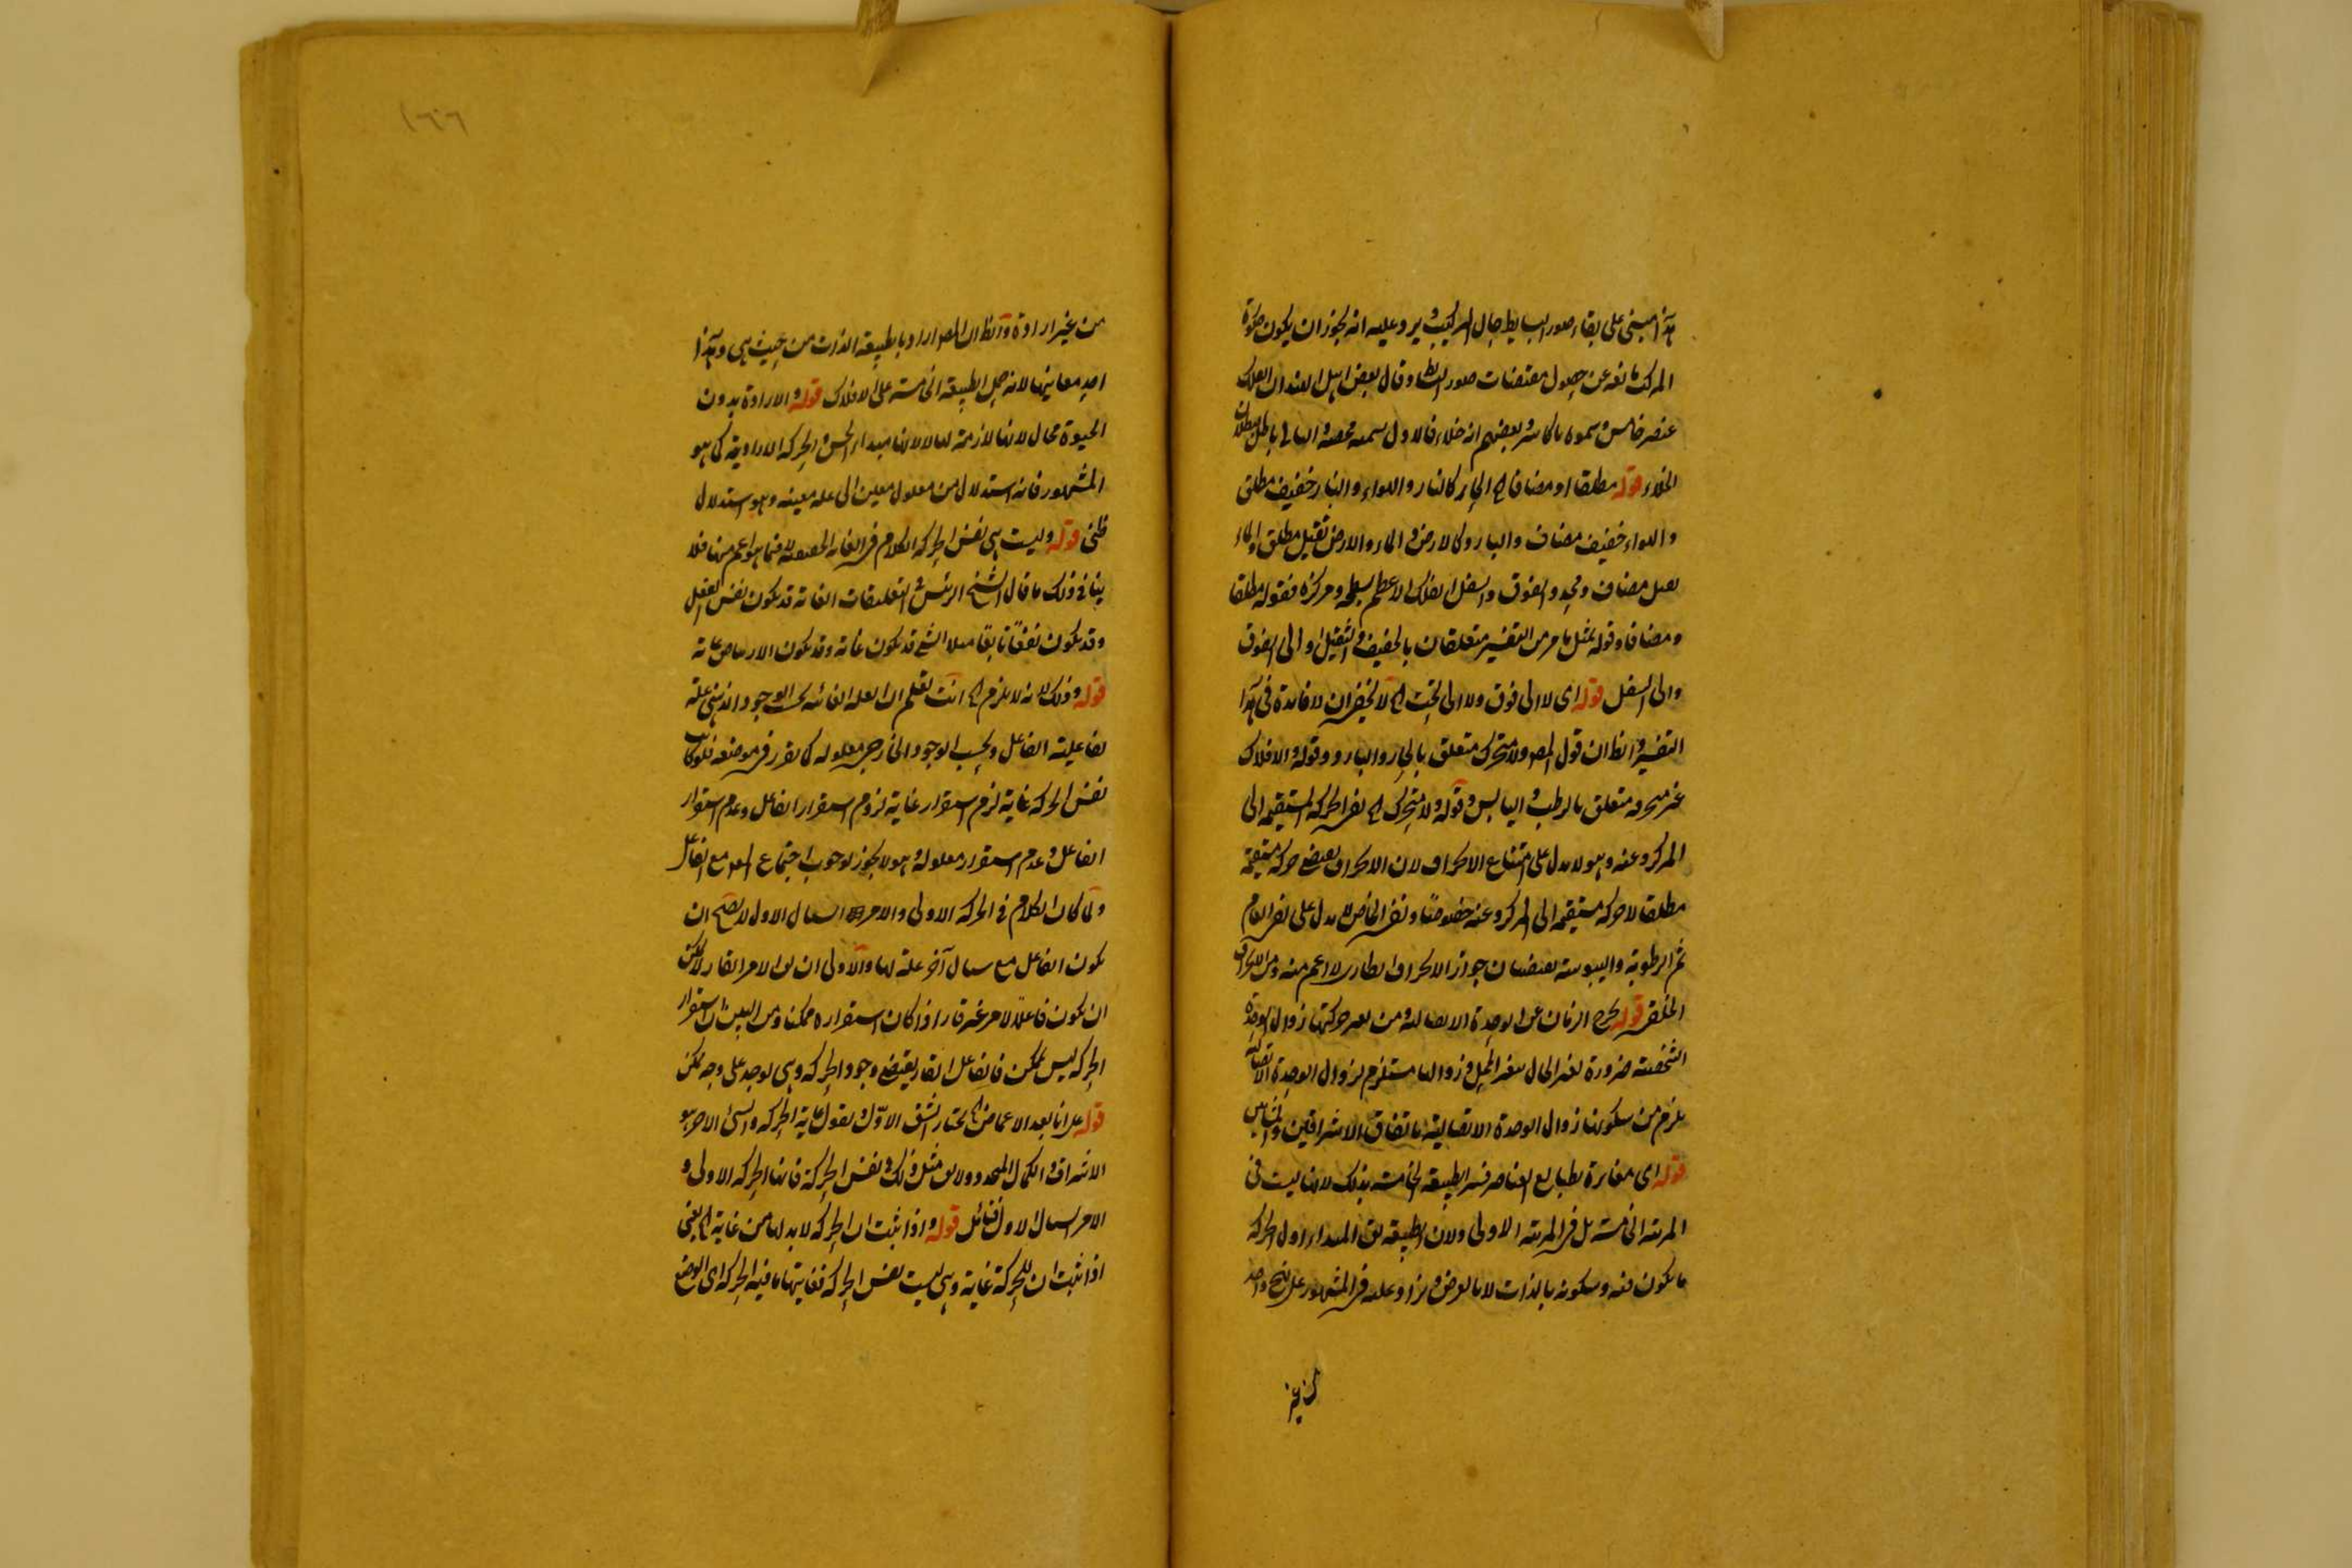 هذا مبنى على بقاء صور البسايط حال التركيب ويرد عليه انه يجوز ان يكون صورة
المركب مانعة عن حصول مقتضيات صور البسائط وقال بعض اهل الهند ان الفلك
عنصر خامس وسموه بالكاس وبعضهم انه خلاء فالاول تسمية محضة والثانى باطل لبطلان
الخلاء قوله مطلقا او مضافا اه الحار كالنار والهواء والنار خفيف مطلق
والهواء خفيف مضاف والبارد كالارض والماء والارض ثقيل مطلق والماء
ثقيل مضاف ومحدد الفوق والسفل الفلك الاعظم بسطحه ومركزه فقوله مطلقا
ومضافا وقوله بمثل ما مر من التفسير متعلقان بالخفيف والثقيل او الى الفوق
والى السفل قوله اى لا الى فوق ولا الى تحت اه لا يخفى ان لا فائدة فى هذا
التفسير والظ ان قول المص ولا متحرك متعلق بالحار والبارد وقوله والافلاك
غير متحركة متعلق بالرطب واليابس وقوله ولا متحرك اه نفى الحركة المستقيمة الى
المركز وعنه وهو لا يدل على امتناع الانحراف لان الانحراف يقتضى حركة مستقيمة
مطلقا لا حركة مستقيمة الى المركز وعنه خصوصًا ونفى الخاص لا يدل على نفى العام
ثم الرطوبة واليبوسة يقتضيان جواز الانحراف الطارى لا اعم منه ومن الانحراف
الخلقى قوله يخرج الزمان عن الوحدة الاتصالية ومن بعد حركتها زوال الوحدة
الشخصية ضرورة تغير الحال بتغير المحل وزوالها مستلزم لزوال الوحدة الاتصالية
يلزم من سكونها زوال الوحدة الاتصالية باتفاق الاشراقيين والمشايين
قوله اى مغايرة لطبايع العناصر فسر الطبيعة الخامسة بذلك لانها ليست فى
المرتبة الخامسة بل فى المرتبة الاولى ولان الطبيعة يق المبداء اول الحركة
ما يكون فيه وسكونه بالذات لا بالعرض ويزاد عليه فى المشهور على نهج واحد
من غير
١٦٦
من غير ارادة والظ ان المص اراد بالطبيعة الذات من حيث هى وهذا
احد معانيها لانه حمل الطبيعة الخامسة على الافلاك قوله والارادة بدون
الحيوة محال لانها لازمة لها لا لانها مبداء الحس والحركة الارادية كما هو
المشهور فانه استدلال من معلول معين الى علة معينة وهو استدلال
ظنى قوله وليست هى نفس الحركة الكلام فى الغاية الحقيقية لا فيما هو اعم منها فلا
ينافى ذلك ما قال الشيخ الرئيس فى التعليقات الغاية قد يكون نفس الفعل
وقد يكون نفعًا تابعًا مثلا المشى قد يكون غاية وقد يكون الارتياض غاية
قوله وذلك لانه لا يلزم اه انت تعلم ان العلة الغائية بحسب الوجود الذهنى علة
لفاعلية الفاعل وبحسب الوجود الخارجى معلولة كما تقرر فى موضعه فلو كانت
نفس الحركة غاية لزم استقرار غاية لزوم استقرار الفاعل وعدم استقرار
الفاعل وعدم استقرار معلوله وهو لا يجوز لوجوب اجتماع المعد مع الفاعل
ولما كان الكلام فى الحركة الاولى والامر السيال الاول لا يصح ان
يكون الفاعل مع سيال آخر علة لها والاولى ان يق الامر القار لا يمكن
ان يكون فاعلًا لامر غير قار اذا كان استقراره ممكنا ومن البين ان استقرار
الحركة ليس بممكن فالفاعل القار يقتضى وجود الحركة وهى توجد على وجه يمكن
قوله على انا بعد الاغماض اه نختار الشق الاول ونقول غاية الحركة والشئ الاخر هو
الاشراق والكمال المتجدد ولا يق مثل ذلك فى نفس الحركة فانها الحركة الاولى و
الامر السيال الاول فتأمل قوله واذا ثبت ان الحركة لابد لها من غاية اه يعنى
اذا ثبت ان للحركة غاية وهى ليست نفس الحركة فغايتها ما فيه الحركة اى الوضع